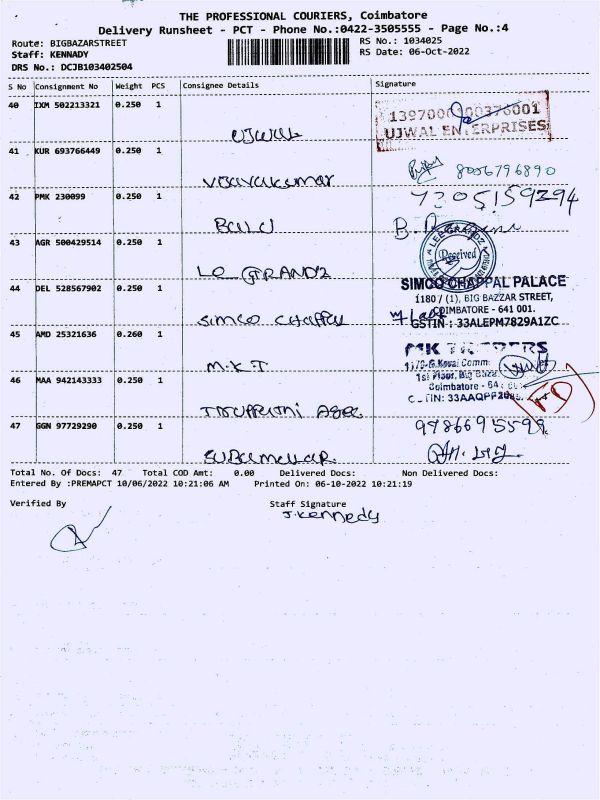 THE PROFESSIONAL COURIERS, Coimbatore
Delivery Runsheet - PCT - Phone No.:0422-3505555 - Page No.:4
Route: BIGBAZARSTREET
RS No.: 1034025
Staff: KENNADY
RS Date: 06-Oct-2022
DRS No.: DCJB103402504
S No Consignment No Weight PCS Consignee Details Signature
40 IXM 502213321 0.250 1
UJWAL
UJWAL ENTERPRISES
41 KUR 693766449 0.250 1
8056796890
Vijayakumar
42 PMK 230099 0.250 1
7305159294
BALU
43 AGR 500429514 0.250 1
LEEGRANDZ
Received
LE GRANDZ
44 DEL 528567902 0.250 1
SIMCO CHAPPAL PALACE
1180 / (1), BIG BAZZAR STREET,
COIMBATORE - 641 001.
SIMCO CHAPPAL
GSTIN : 33ALEPM7829A1ZC
45 AMD 25321636 0.260 1
MK
M.K.T
1st Floor, Big Baza
46 MAA 942143333 0.250 1
Coimbatore - 64
47 GGN 97729290 0.250 1
Total No. Of Docs: 47 Total COD Amt: 0.00 Delivered Docs: Non Delivered Docs:
Entered By :PREMAPCT 10/06/2022 10:21:06 AM Printed On: 06-10-2022 10:21:19
Verified By Staff Signature
J.Kennedy